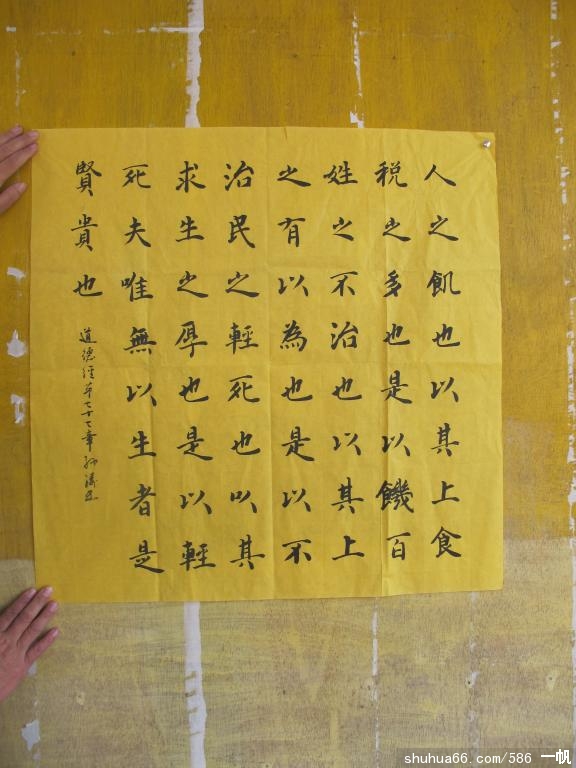 人之飢也以其上食
税之多也是以饑百
姓之不治也以其上
之有以為也是以不
治民之輕死也以其
求生之厚也是以輕
死夫唯無以生者是
賢貴也
道德經第七十七章
shuhua66.com/586 一帆